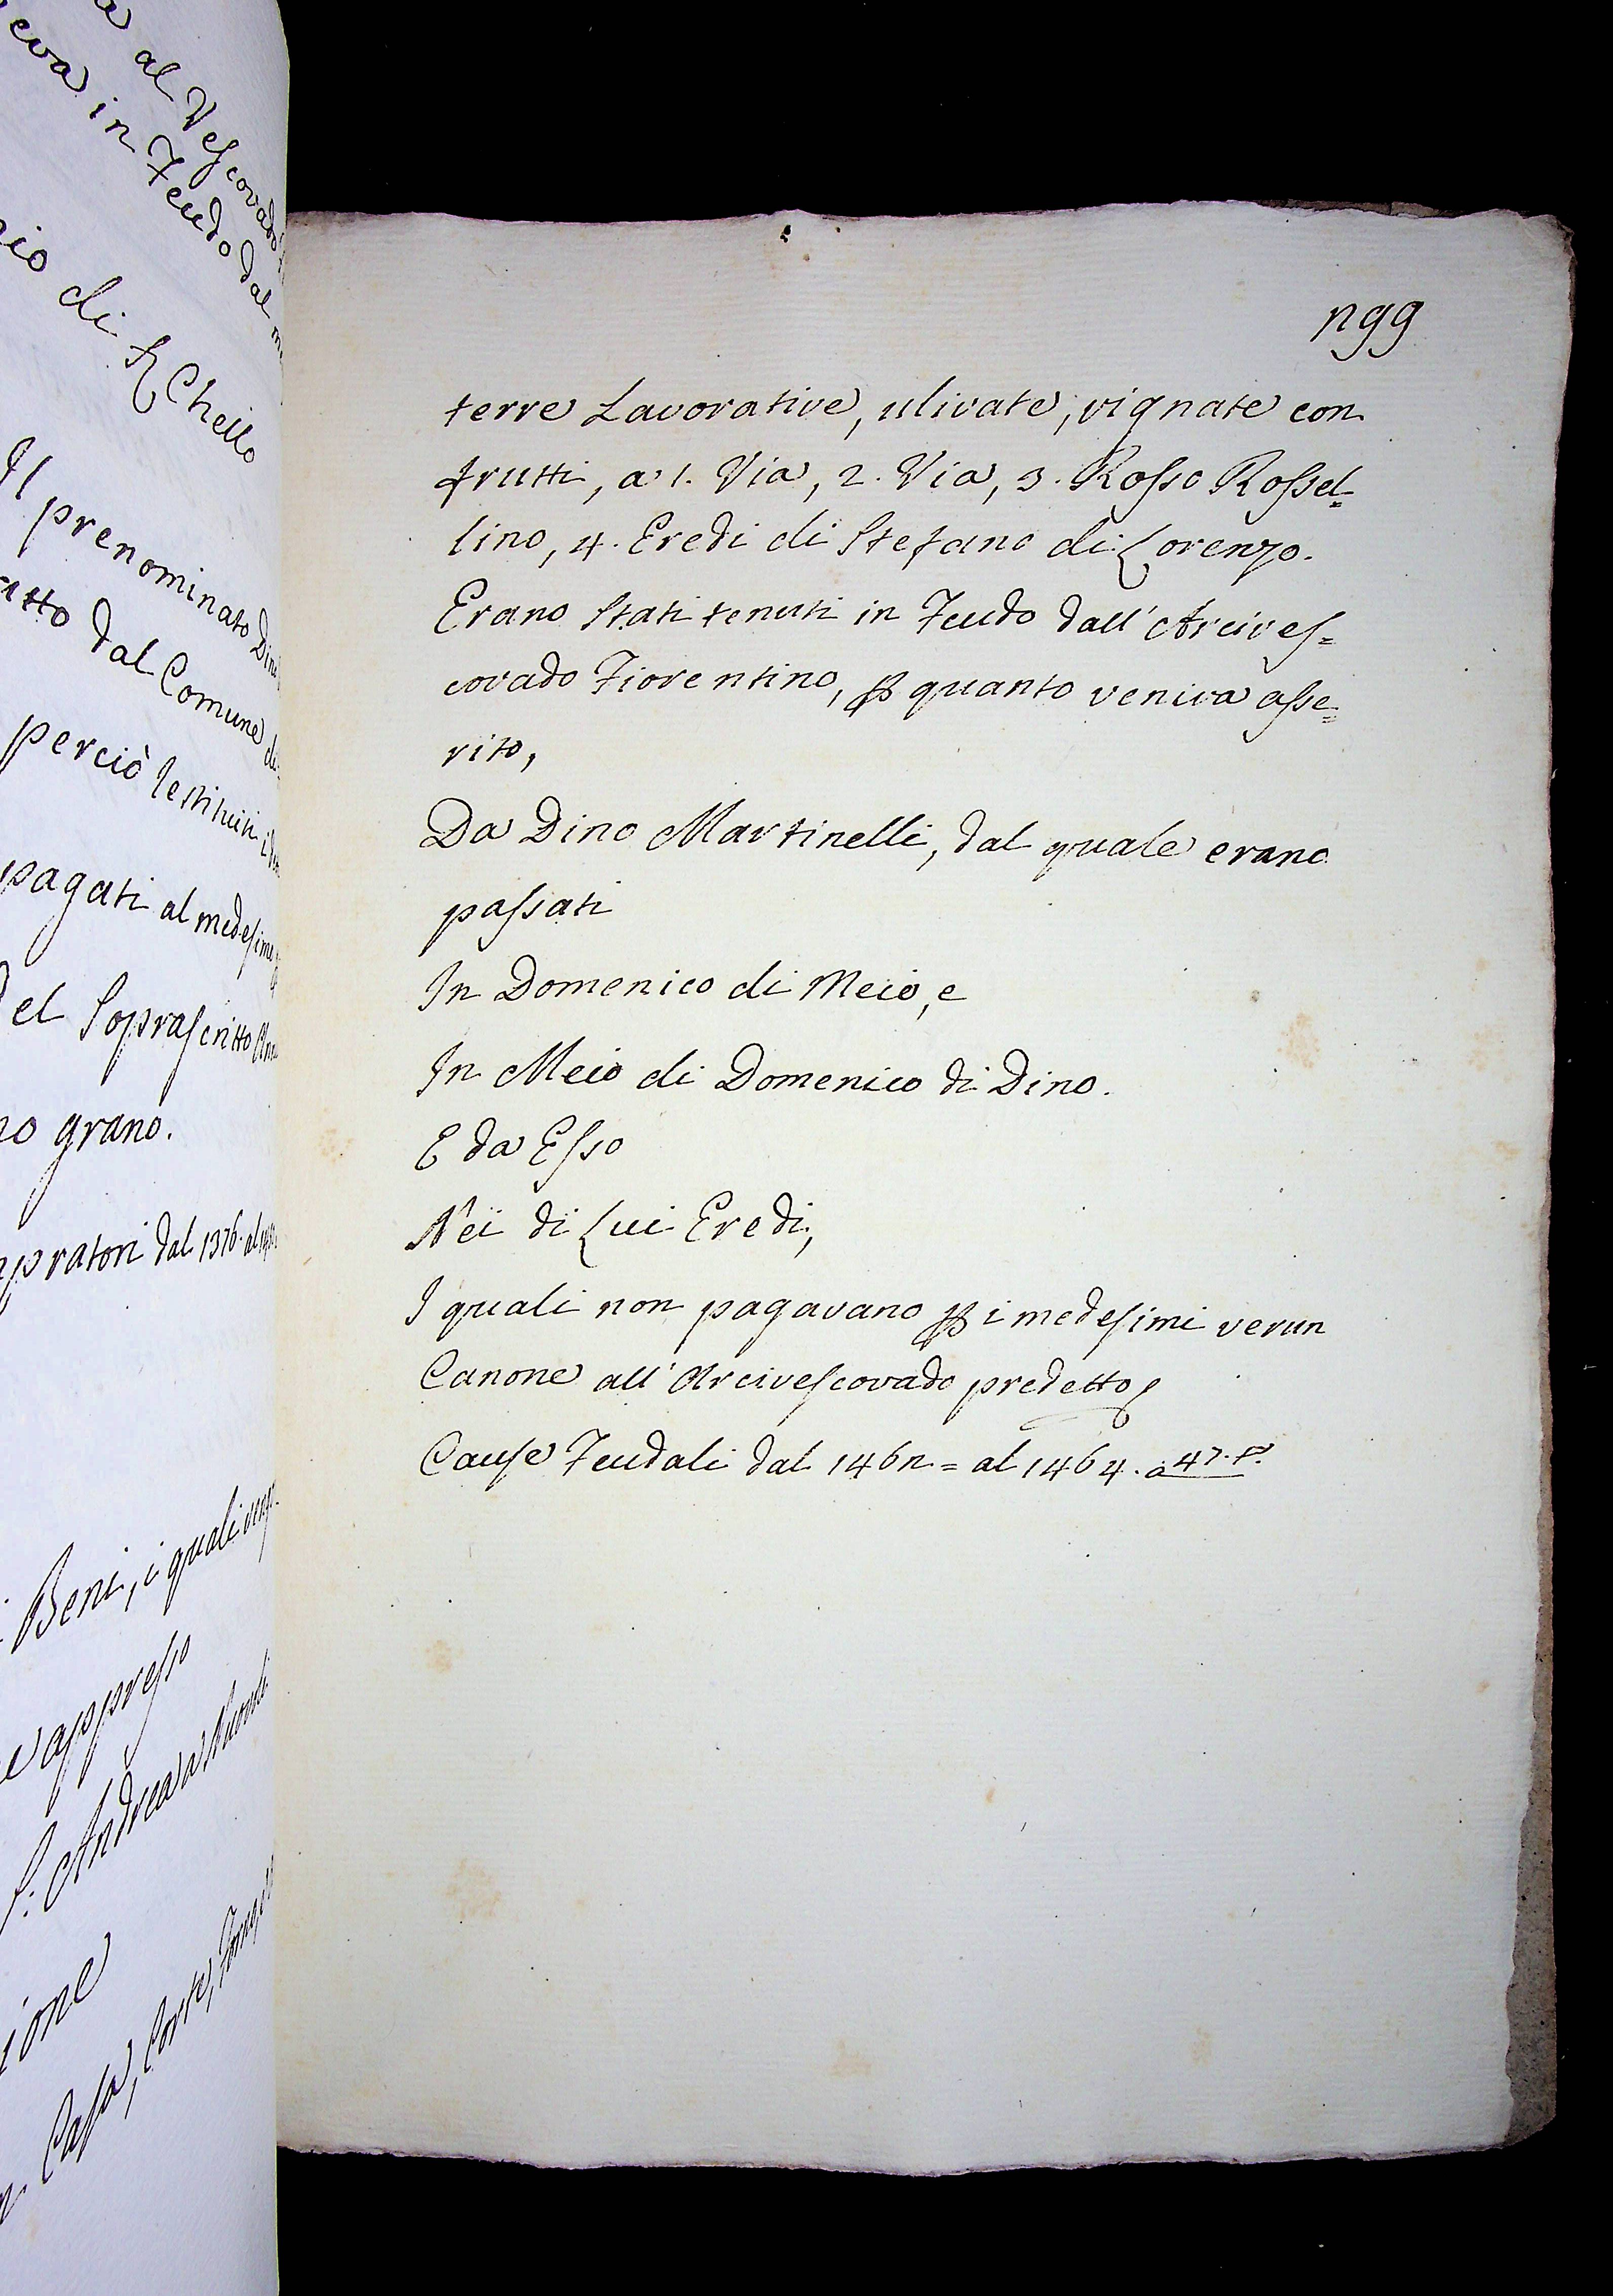 a al Vescovado
eva in Feudo dal
io di Chello
Il prenominato Dino
dal Comune
perciò
pagati al medesimo
el Soprascritto
no grano.
pratori dal 1376. al
Beni, i quali
e appresso
S: Andrea a
ione
Casa, Corte,
299
terre Lavorative, ulivate, vignate con
frutti, a' 1. Via, 2. Via, 3. Rosso Rossel=
lino, 4. Eredi di Stefano di Lorenzo.
Erano Stati tenuti in Feudo dall' Arcives=
covado Fiorentino, ꝑ quanto veniva asse=
rito,
Da Dino Martinelli, dal quale erano
passati
In Domenico di Meio, e
In Meio di Domenico di Dino.
E da Esso
Nei di Lui Eredi,
I quali non pagavano ꝑ i medesimi verun
Canone all' Arcivescovado predetto
Cause Feudali dal 1462 = al 1464. a 47. t.